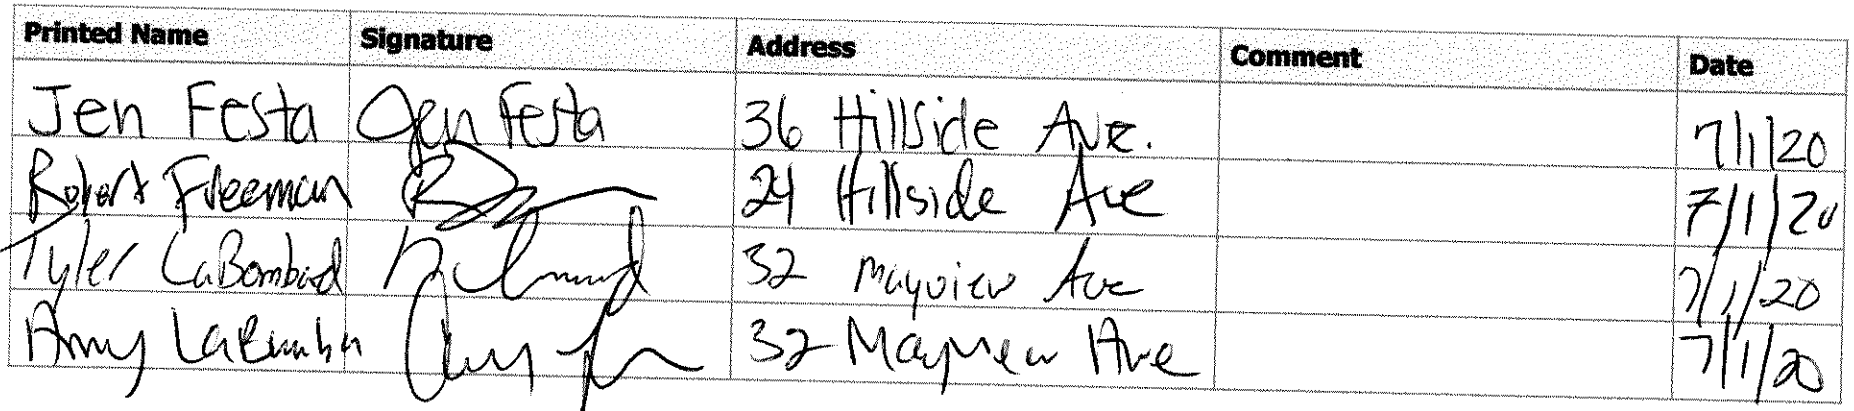 Printed Name Signature Address Comment Date
Jen Festa Jen Festa 36 Hillside Ave. 7/1/20
Robert Freeman 24 Hillside Ave 7/1/20
Tyler LaBombard 32 Mayview Ave 7/1/20
Amy 32 Mayview Ave 7/1/20